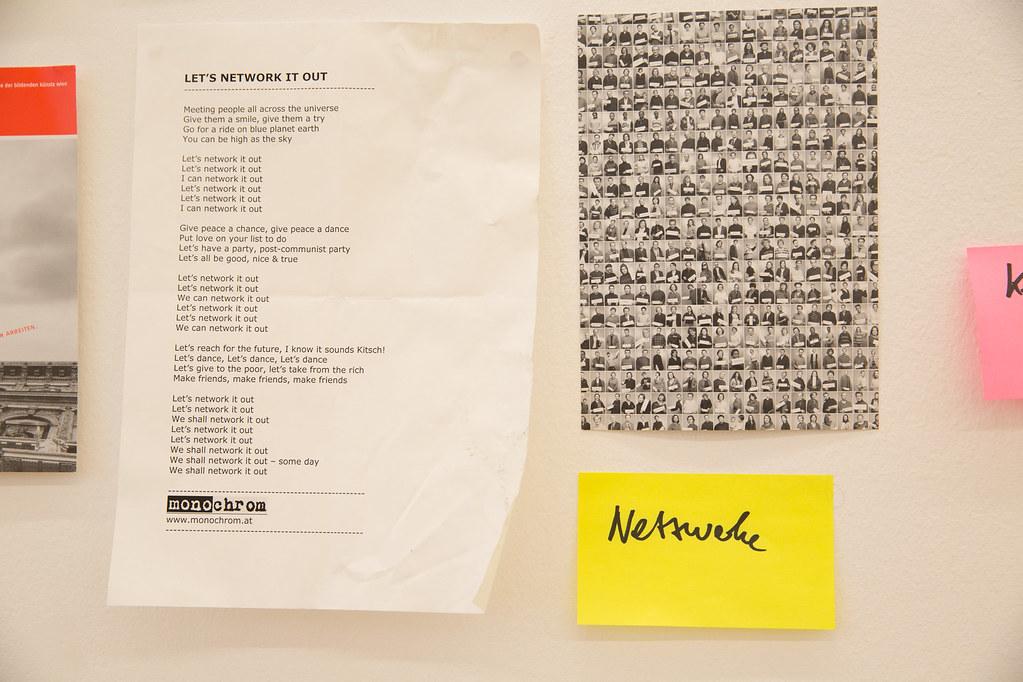 der bildenden künste wien
ARBEITEN.
LET'S NETWORK IT OUT
Meeting people all across the universe
Give them a smile, give them a try
Go for a ride on blue planet earth
You can be high as the sky
Let's network it out
Let's network it out
I can network it out
Let's network it out
Let's network it out
I can network it out
Give peace a chance, give peace a dance
Put love on your list to do
Let's have a party, post-communist party
Let's all be good, nice & true
Let's network it out
Let's network it out
We can network it out
Let's network it out
Let's network it out
We can network it out
Let's reach for the future, I know it sounds Kitsch!
Let's dance, Let's dance, Let's dance
Let's give to the poor, let's take from the rich
Make friends, make friends, make friends
Let's network it out
Let's network it out
We shall network it out
Let's network it out
Let's network it out
We shall network it out
We shall network it out – some day
We shall network it out
monochrom
www.monochrom.at
Netzwerke
K